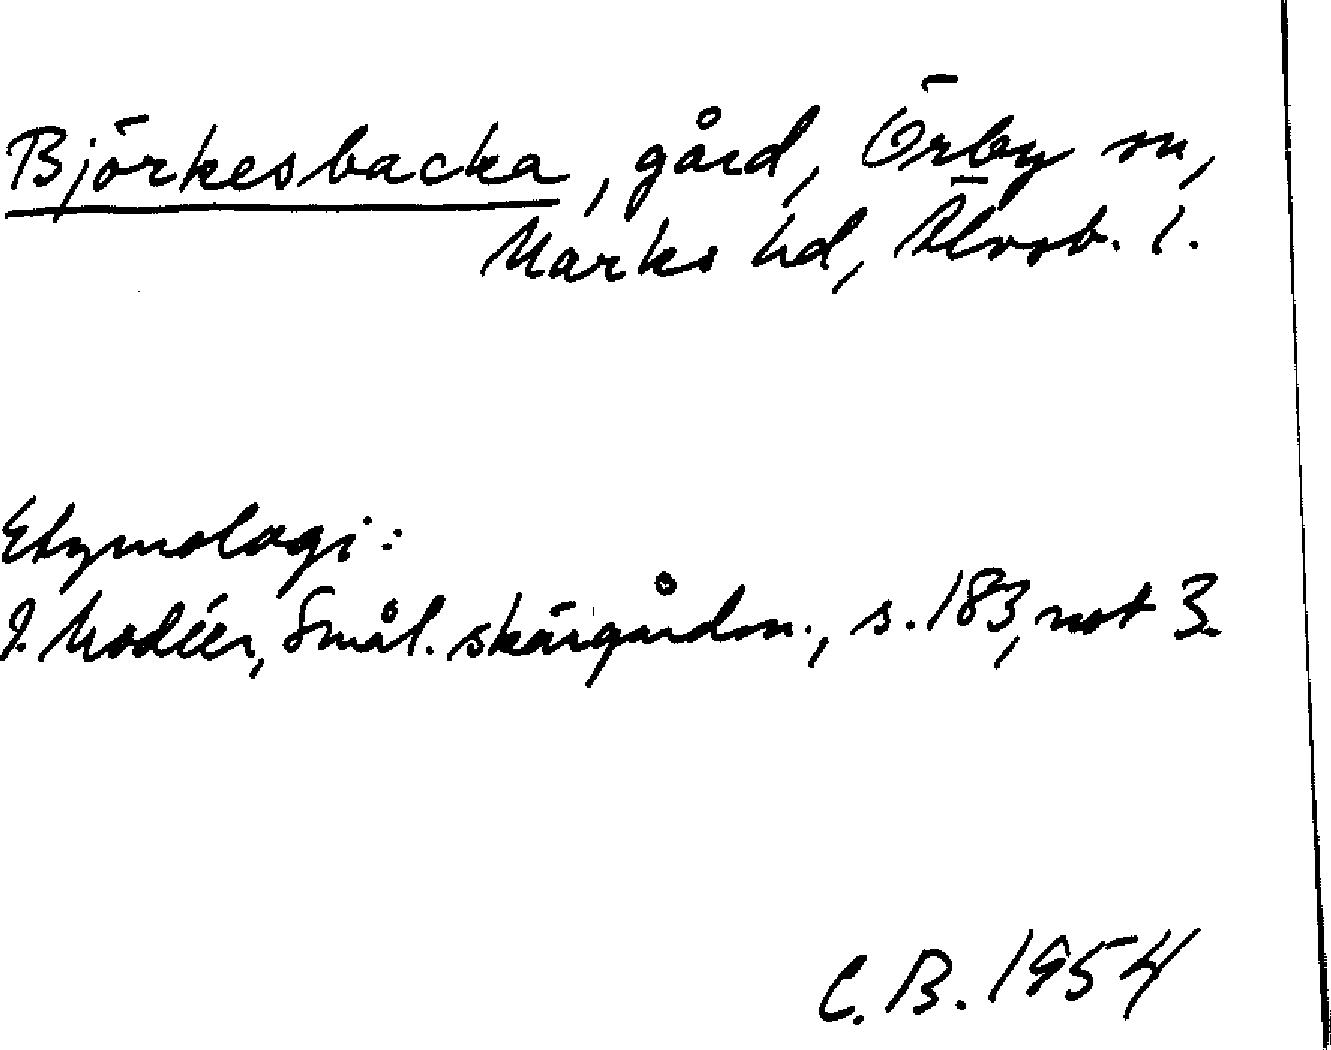 Björkesbacka, gård, Örby sn,
Marks hd, Älvsb. l.
Etymologi:
I. Modéer, Smål. skärgårdsn., s. 183, not 3.
C. B. 1954